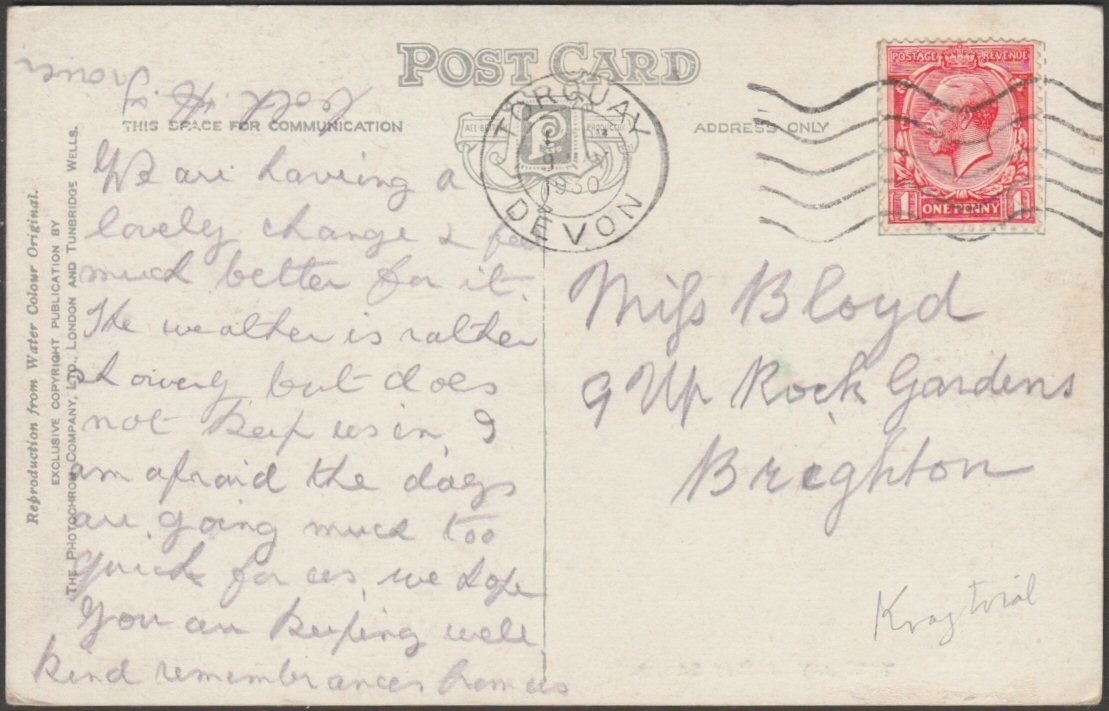 POST CARD
THIS SPACE FOR COMMUNICATION
ADDRESS ONLY
We are having a
lovely change & feel
much better for it.
The weather is rather
showery but does
not keep us in, I
am afraid the days
are going much too
quick for us, we hope
You are keeping well
kind remembrances from us
both
Miss Bloyd
9 Up Rock Gardens
Brighton
TORQUAY
1930
DEVON
POSTAGE REVENUE
1D 1D
ONE PENNY
Reproduction from Water Colour Original.
EXCLUSIVE COPYRIGHT PUBLICATION BY
THE PHOTOCHROM COMPANY, LTD., LONDON AND TUNBRIDGE WELLS.